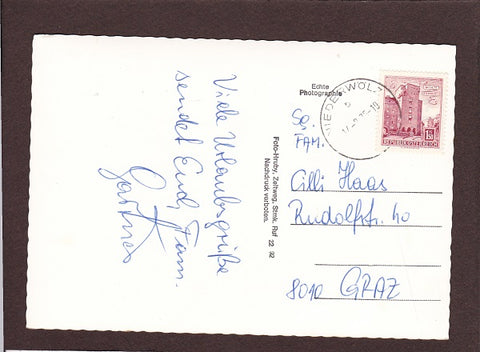 Viele Urlaubsgrüße
sendet Euch Fam.
Gartner
Foto-Hruby, Zeltweg, Stmk. Ruf 22 92
Nachdruck verboten.
Echte
Photographie
NIEDERWÖLZ
1.50
REPUBLIK ÖSTERREICH
FAM.
Cilli Haas
Rudolfstr. 40
8010 GRAZ